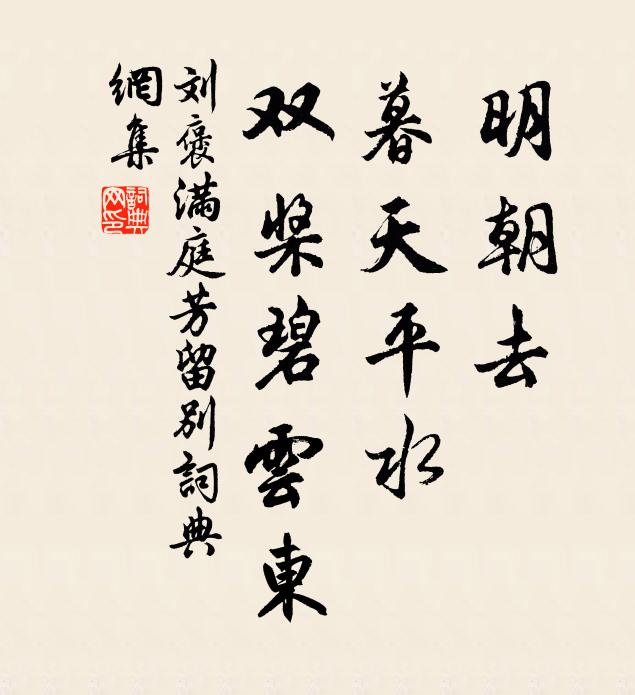 明朝去
暮天平水
双桨碧雲東
刘褒满庭芳留别詞典
網集
詞典
网印